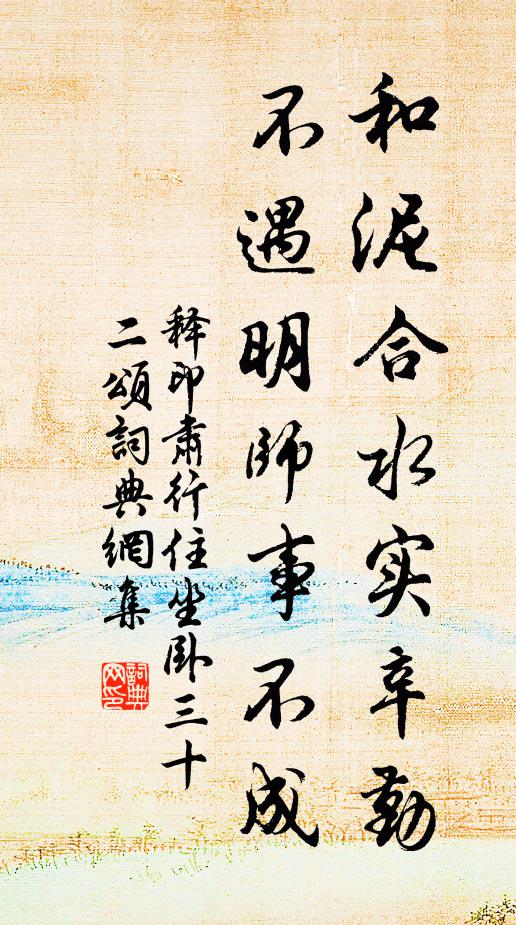 和泥合水实辛勤
不遇明师事不成
释印肃行住坐卧三十
二颂词典網集
詞典網印